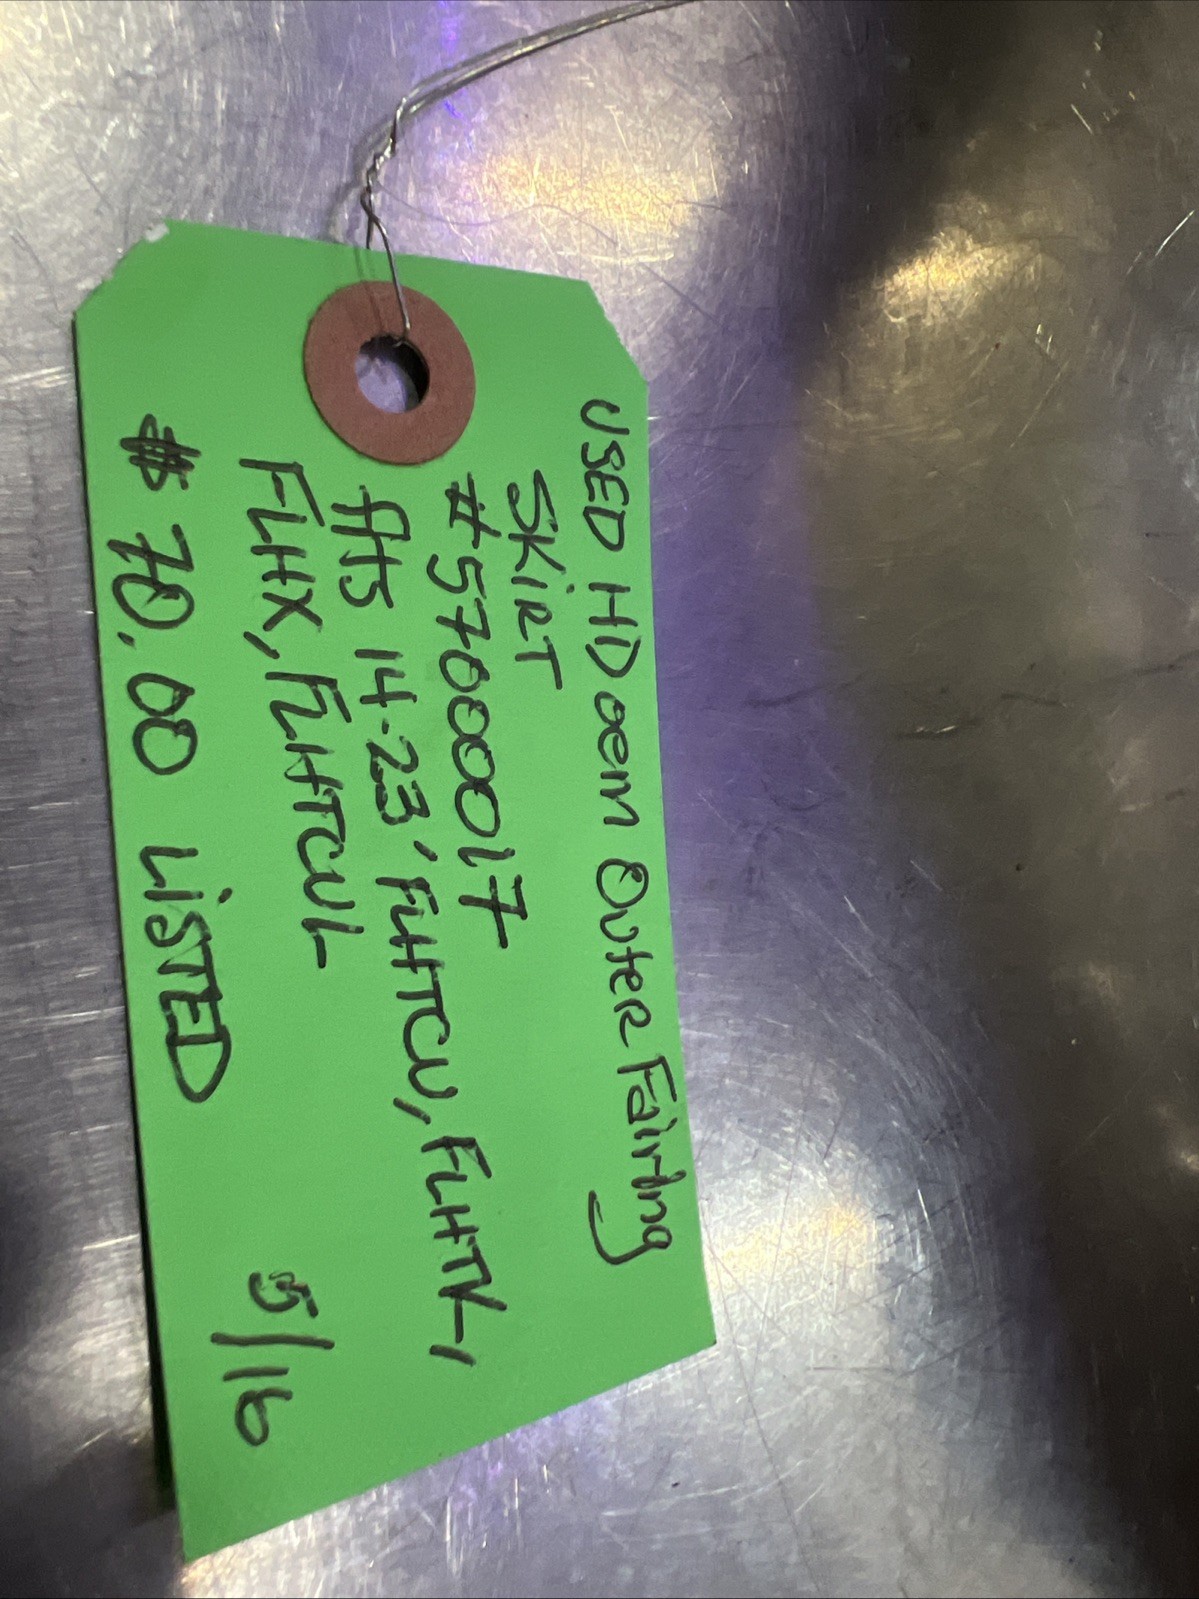 USED HD oem Outer Fairing
SKIRT
#57000017
fits 14-23', FLHTCU, FLHTK,
FLHX, FLHTCUL
$70.00 LISTED 5/16